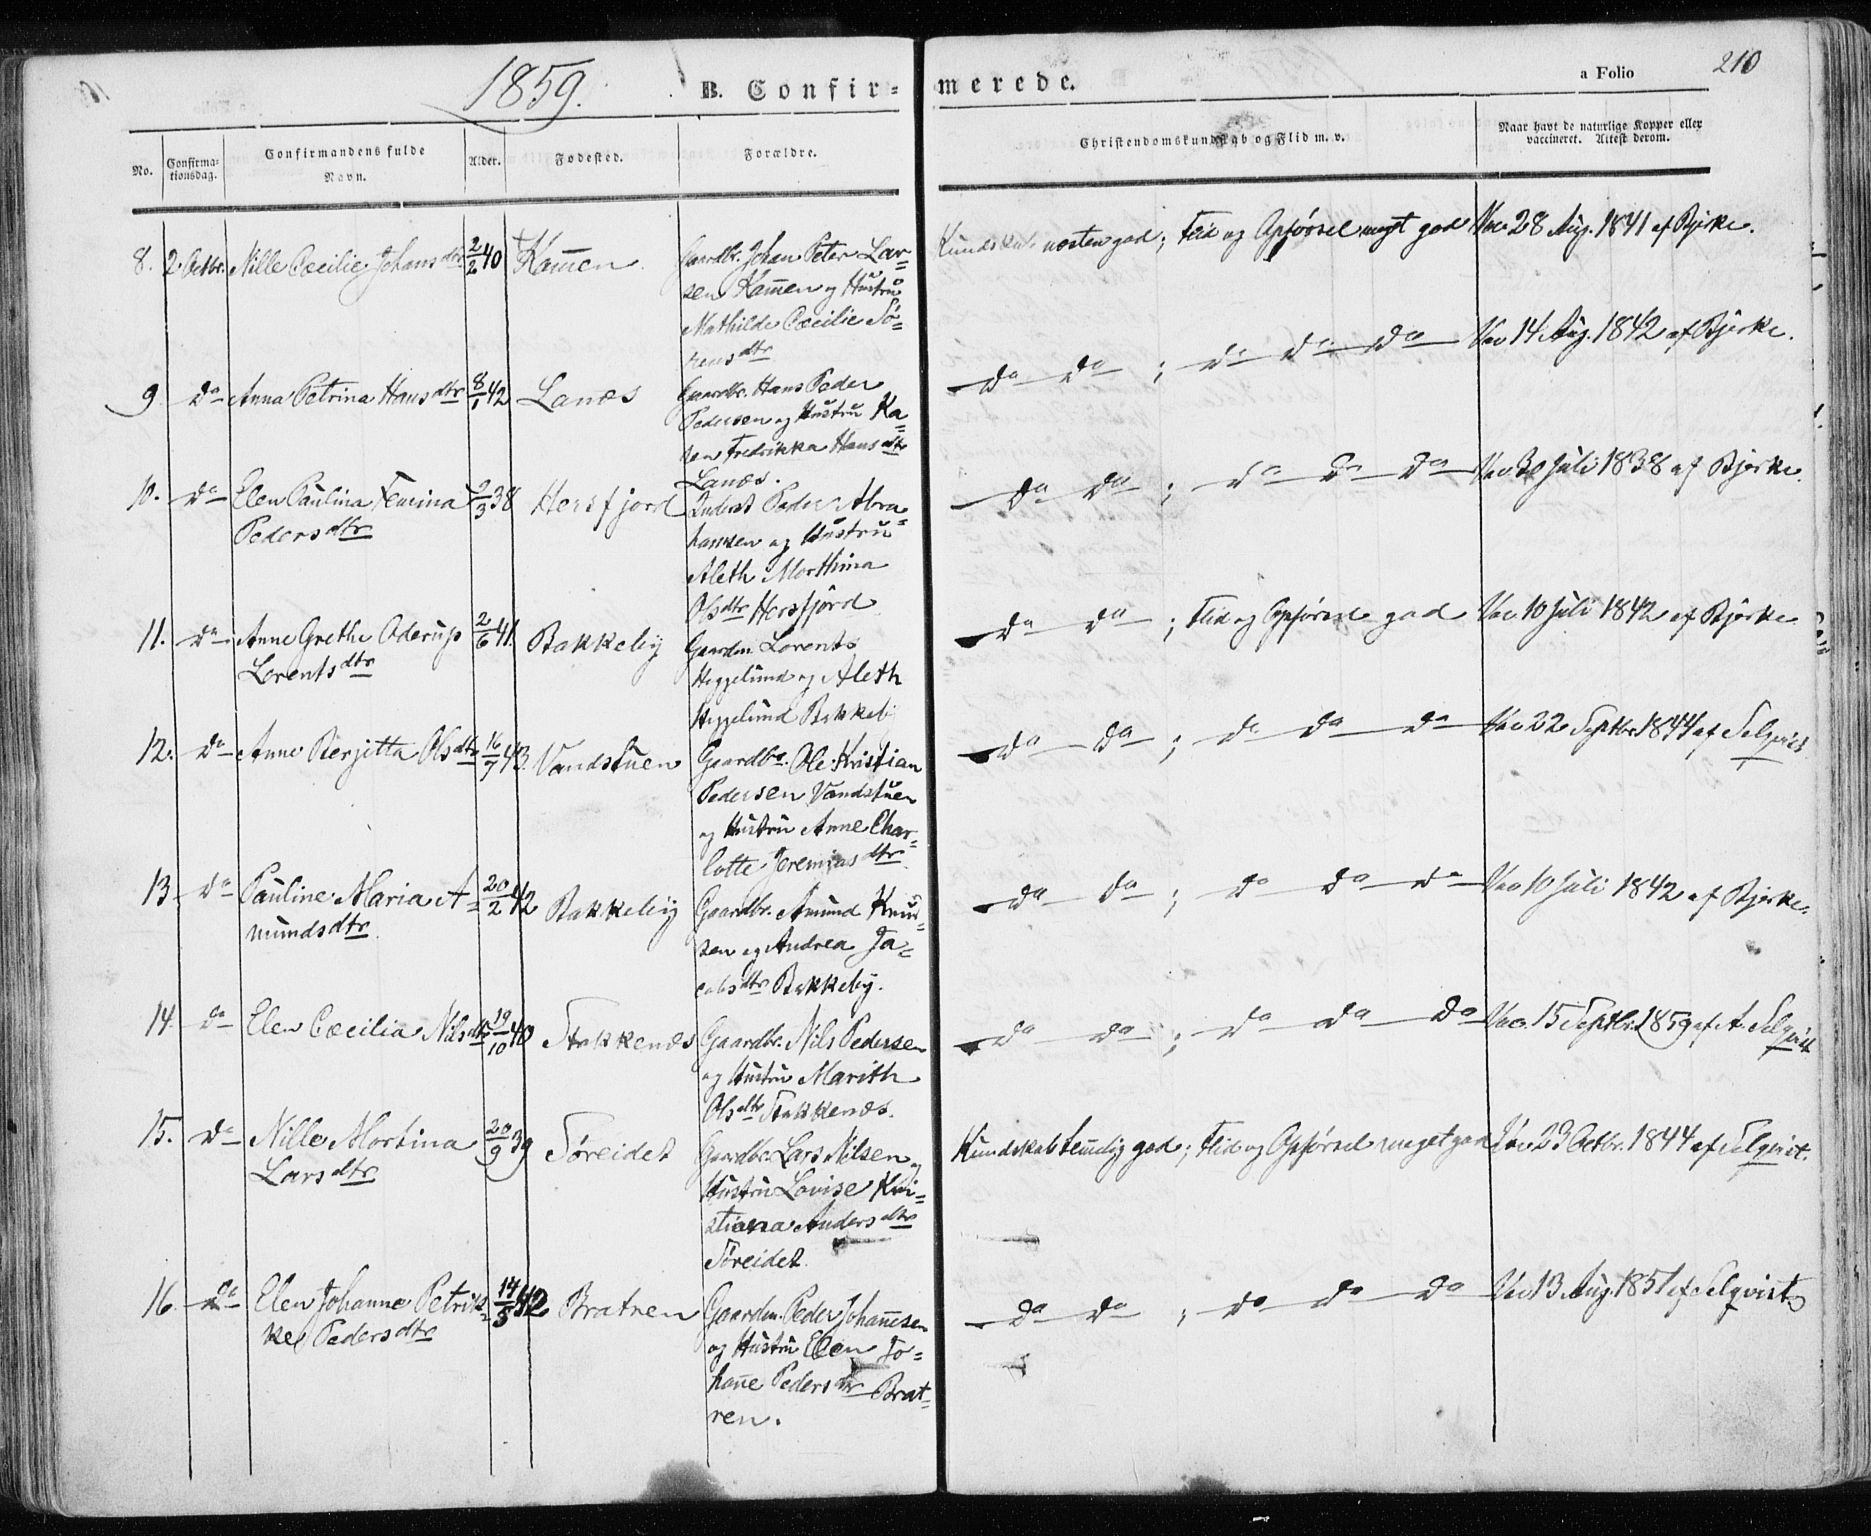 1859.
B. Confir-
merede.
a Folio
210
No.
Confirma-
tionsdag.
Confirmandens fulde
Navn.
Alder.
Fødested.
Forældre.
Christendomskundskab og Flid m. v.
Naar havt de naturlige Kopper eller
vaccineret. Attest derom.
8. 2 Octbr. Nille Cæcilie Johansdtr 2/2 40 Kam̄en
Gaardbr. Johan Peter Lar=
sen Kam̄en og Hustru
Mathilde Cæcilie Sö=
rensdtr
Kundskab næsten god; Flid og Opförsel meget god
Vac 28 Aug. 1841 af Bjerke.
9 Do Anna Petrina Hansdtr 8/1 42 Lanæs
Gaardbr. Hans Peder
Pedersen og Hustru Ka=
ren Fredrikka Hansdtr
Lanæs.
Do Do ; Do Do Do
Vac 14 Aug. 1842 af Bjerke.
10. Do Elen Paulina
Pedersdtr
2/3 38 Hersfjord
Inderst Peder Abra=
hamsen og Hustru
Aleth Morthina
Olsdtr Hersfjord
Do Do ; Do Do Do
Vac 30 Juli 1838 af Bjerke.
11. Do Anne Grethe Oderup
Lorentsdtr
2/6 41. Bakkeby
Gaardm. Lorents
Heggelund og Aleth
Heggelund Bakkeby
Do Do ; Flid og Opförsel god
Vac 10 Juli 1842 af Bjerke
12. Do Anne Berjitta Olsdtr 16/7 43. Vandstuen
Gaardbr. Ole Kristian
Pedersen Vandstuen
og Hustru Anne Char=
lotte Jeremiasdtr
Do Do ; Do Do Do
Vac 22 Septbr 1844 af Selqvist
13 Do Pauline Maria A=
mundsdtr
20/2 42 Bakkeby
Gaardbr. Amund Knud=
sen og Andrea Ja=
cobsdtr Bakkeby.
Do Do ; Do Do Do
Vac 10 Juli 1842 af Bjerke.
14 Do Elen Cæcilia Nilsdtr 19/10 40 Stakkenæs
Gaardbr. Nils Pedersen
og Hustru Marith
Olsdtr Stakkenæs.
Do Do ; Do Do Do
Vac. 15 Septbr. 1859 af A. Selqvist
15. Do Nille Mortina
Larsdtr
20/9 39 Söreidet
Gaardbr. Lars Nilsen og
Hustru Lovise Kri=
stiana Andersdtr
Söreidet
Kundskab temmelig god; Flid og Opförsel meget god
Vac 23 Octbr. 1844 af Selqvist.
16 Do Elen Johanne Petrik=
ke Pedersdtr
14/5 42 Bratren
Gaardm. Peder Johan̄esen
og Hustru Elen Jo=
han̄e Pedersdtr Brat=
ren.
Do Do ; Do Do Do
Vac 13 Aug. 1851 af Selqvist